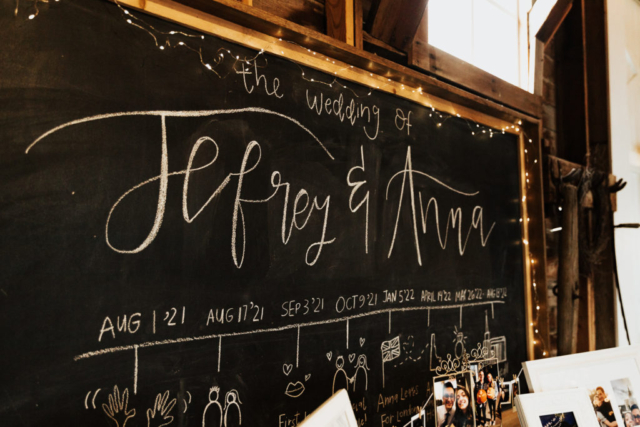 the wedding of
Jefrey & Anna
AUG 1 '21 AUG 17 '21 SEP 3 '21 OCT 9 '21 JAN 5 '22 APRIL '22 MAY 26 '22 AUG '22
First Anna
For London